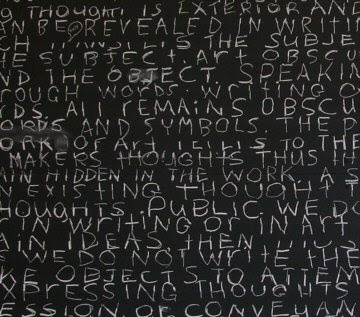 THOUGHT IS EXTERIOR AN
AN BE REVEALED IN WRITI
IS THE SUBJE
HE SUBJECT. Art OBSCU
ND THE OBJECT SPEAKIN
OUGH WORDS. WRITING O
DS. All REMAINS OBSCU
ORDS AND SYMBOLS THE P
ORK OF Art IS TO THE
MAKERS THOUGHTS THUS TH
AIN HIDDEN IN THE WORK. A S
N EXISTING THOUGHT
HOUGHTS PUBLIC WE D
IN WRITING OR IN Art
AIN IDEAS. THEN
WE DO NOT WRITE
KE OBJECTS TO ATTEM
XPRESSING THOUGHTS
ESSION OF CONVEYAN